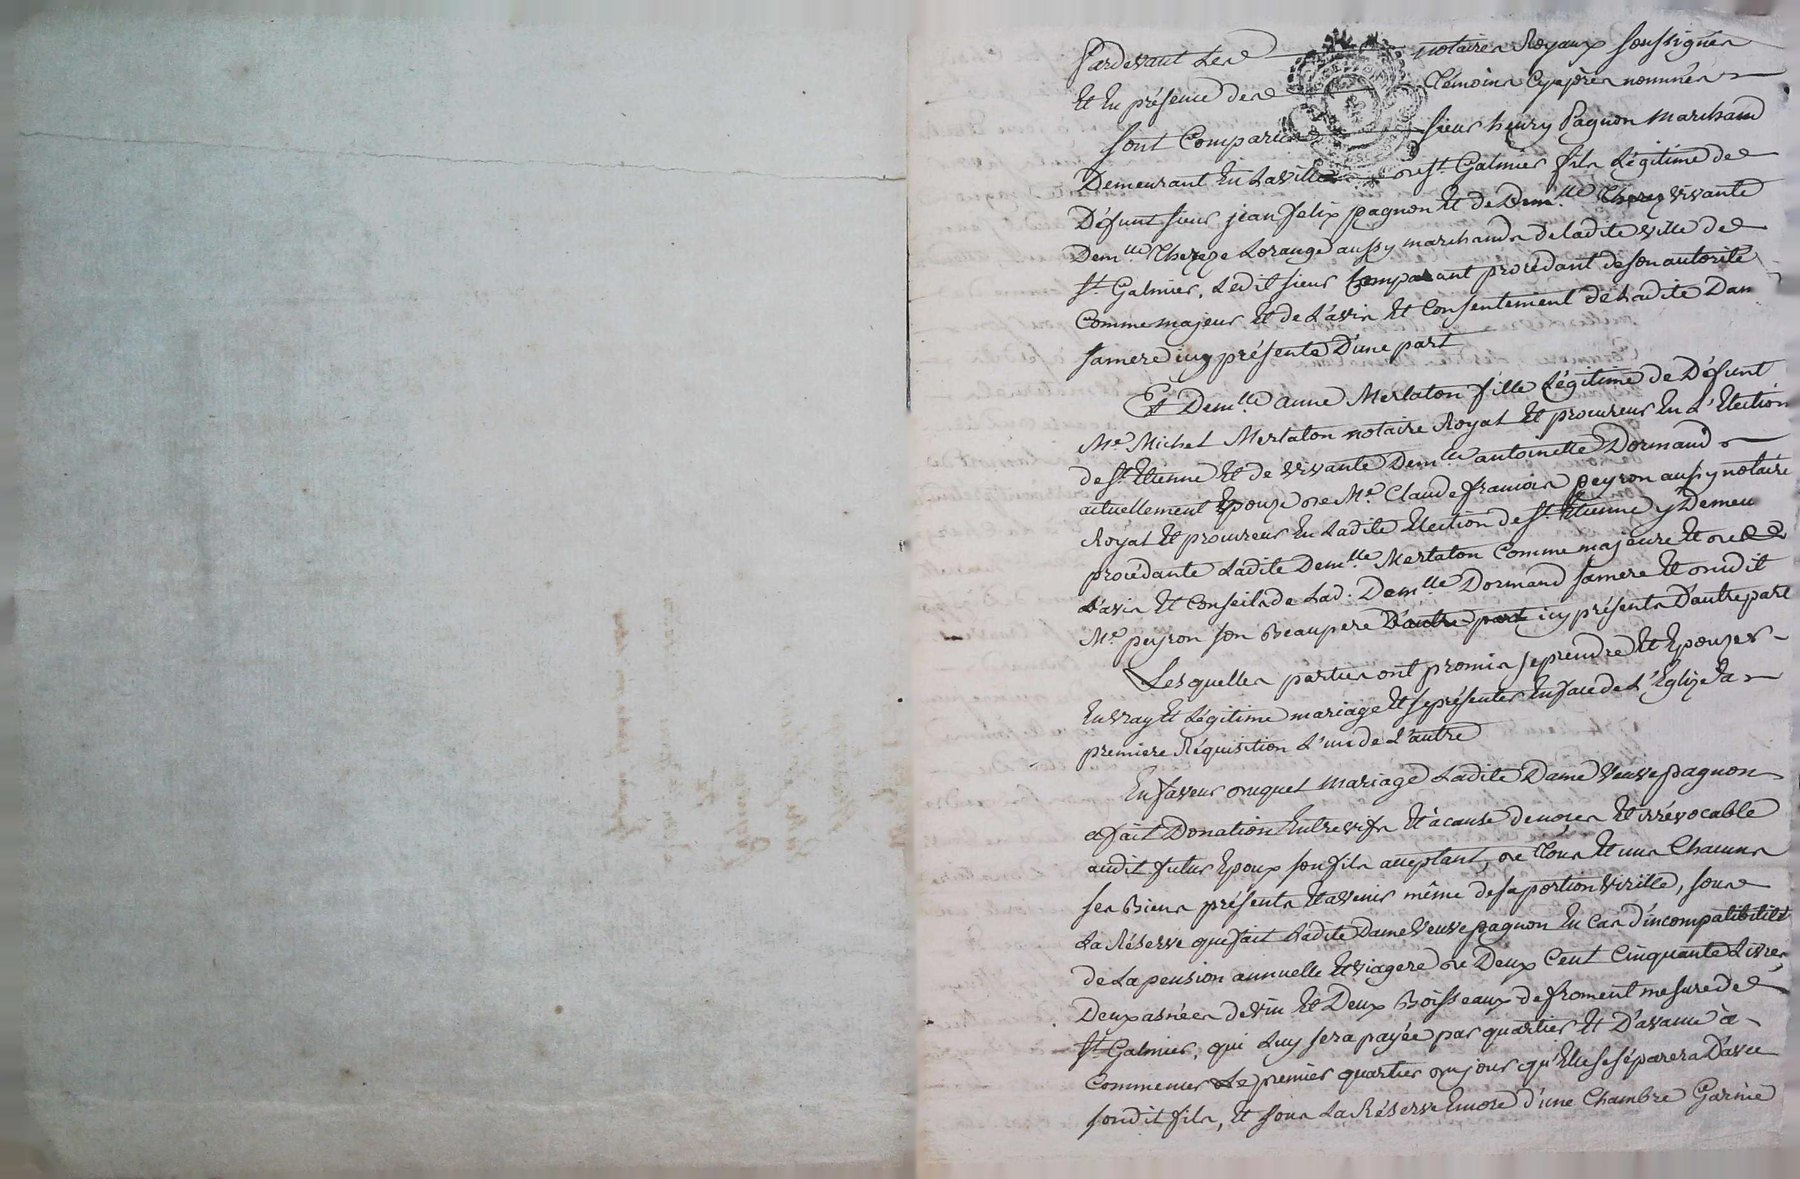 Pardevant Les notaires Royaux soussignés
Et En présence des Témoins Cyaprès nommés
sont Comparus sieur henry Pagnon Marchand
Demeurant En La ville de St. Galmier fils Légitime de
Défunt sieur jean felix pagnon Et de Demlle Therez vivante
Demlle Thereze Lorange aussy marchande de ladite ville de
St. Galmier, Ledit sieur Comparant procédant de son autorité
Comme majeur Et de L'avis Et Consentement de Ladite Dam
sa mere icy présente D'une part
Et Demlle anne Merlaton fille Légitime de Défunt
Me Michel Merlaton notaire Royal Et procureur En L'Election
de St. Etienne Et de vivante Demlle antoinette Dormand
actuellement Epouze de Me. Claude francois peyron aussy notaire
Royal Et procureur En Ladite Election de St. Etienne y Demeu
procédante Ladite Demlle Merlaton Comme majeure Et de
L'avis Et Conseils de Lad. Demlle Dormand sa mere Et dudit
Me peyron son Beaupere D'autre part icy présents D'autre part
Les quelles parties ont promis se prendre Et Epouzer
En vray Et Légitime mariage Et se présenter En face de L'Eglize a
premiere Réquisition L'un de L'autre
En faveur duquel mariage Ladite Dame veuve pagnon
a fait Donation Entre vifs Et à cause de noces Et irrévocable
audit futur Epoux son fils acceptant, de Tous Et uns Chacuns
ses Biens présents Et avenir même de sa portion virille, sous
La Réserve que fait Ladite Dame veuve pagnon En Cas d'incompatibilité
de La pension annuelle Et viagere de Deux Cent Cinquante Livres,
Deux asnées de vin Et Deux Boisseaux de froment mesure de
St. Galmier, qui Luy sera payée par quartier Et D'avance à
Commencer Le premier quartier du jour qu'Elle se séparera D'avec
sondit fils, Et sous La Réserve Encore d'une Chambre Garnie